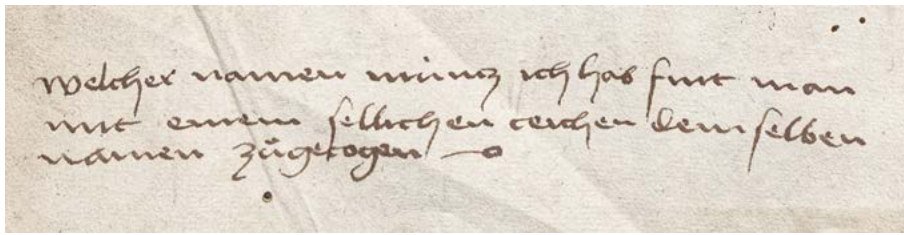 welcher namen müntz ich hab fint man
mit einem sellichen ceichen dem selben
namen zůgezogen